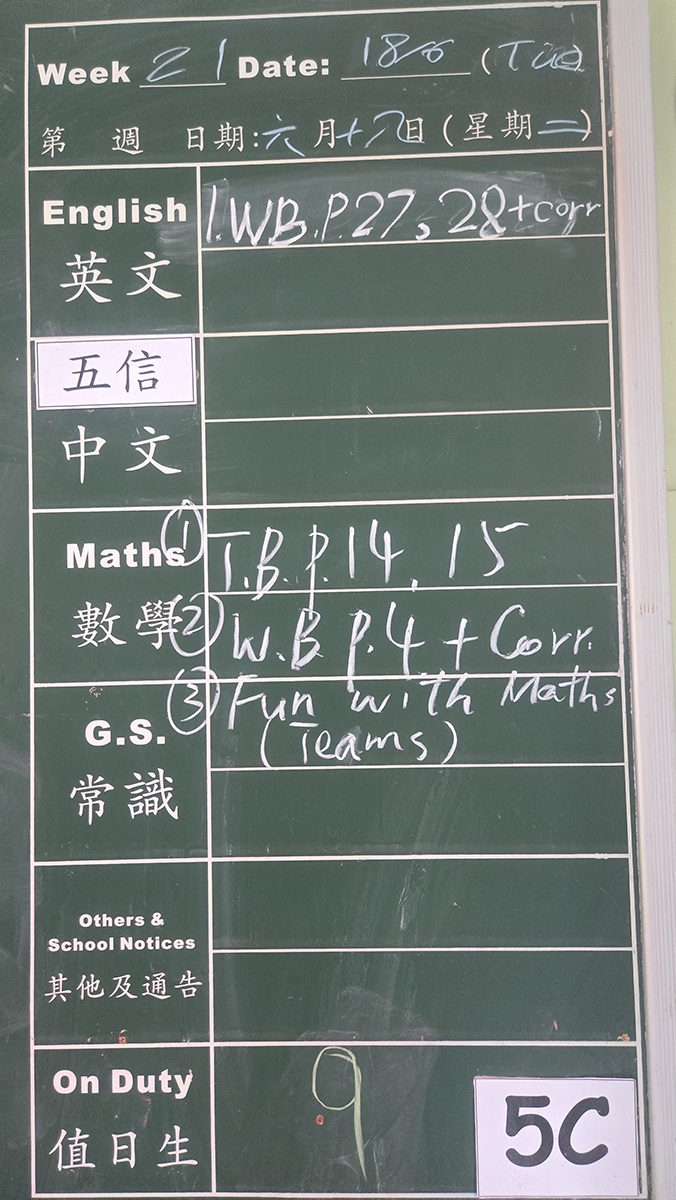 Week 21 Date: 18-6 (Tue)
第 週 日期:六月十八日(星期二)
English 1. WB. P.27, 28+corr
英文
五信
中文
Maths ① T.B. P.14, 15
數學 ② W.B P.4 + Corr.
③ Fun with Maths
G.S. (Teams)
常識
Others &
School Notices
其他及通告
On Duty 9
值日生
5C